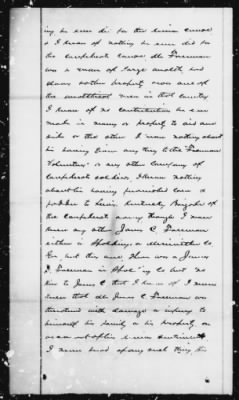 ing he ever did for the Union cause
& I know of nothing he ever did for
the Confederate cause. Mr Freeman
was a man of large wealth had
slaves & other property was one of
the wealthiest men in that County
I know of no contribution he ever
made in money or property to aid one
side or the other I know nothing about
his having given any thing to the "Freeman
Volunteers" or any other Company of
Confederate soldiers. I know nothing
about his having furnished corn &
fodder to Lewis Kentucky Brigade of
the Confederate army though I never
knew any other James C. Freeman
either in Spalding or Meriwether Co.
Ga. but this one. There was a James
Freeman in Spalding Co but no
kin to James C that I know of I never
knew that Mr James C Freeman was
threatened with damage or injury to
himself his family or his property on
account of his Union sentiments
I never heard of any such thing. His